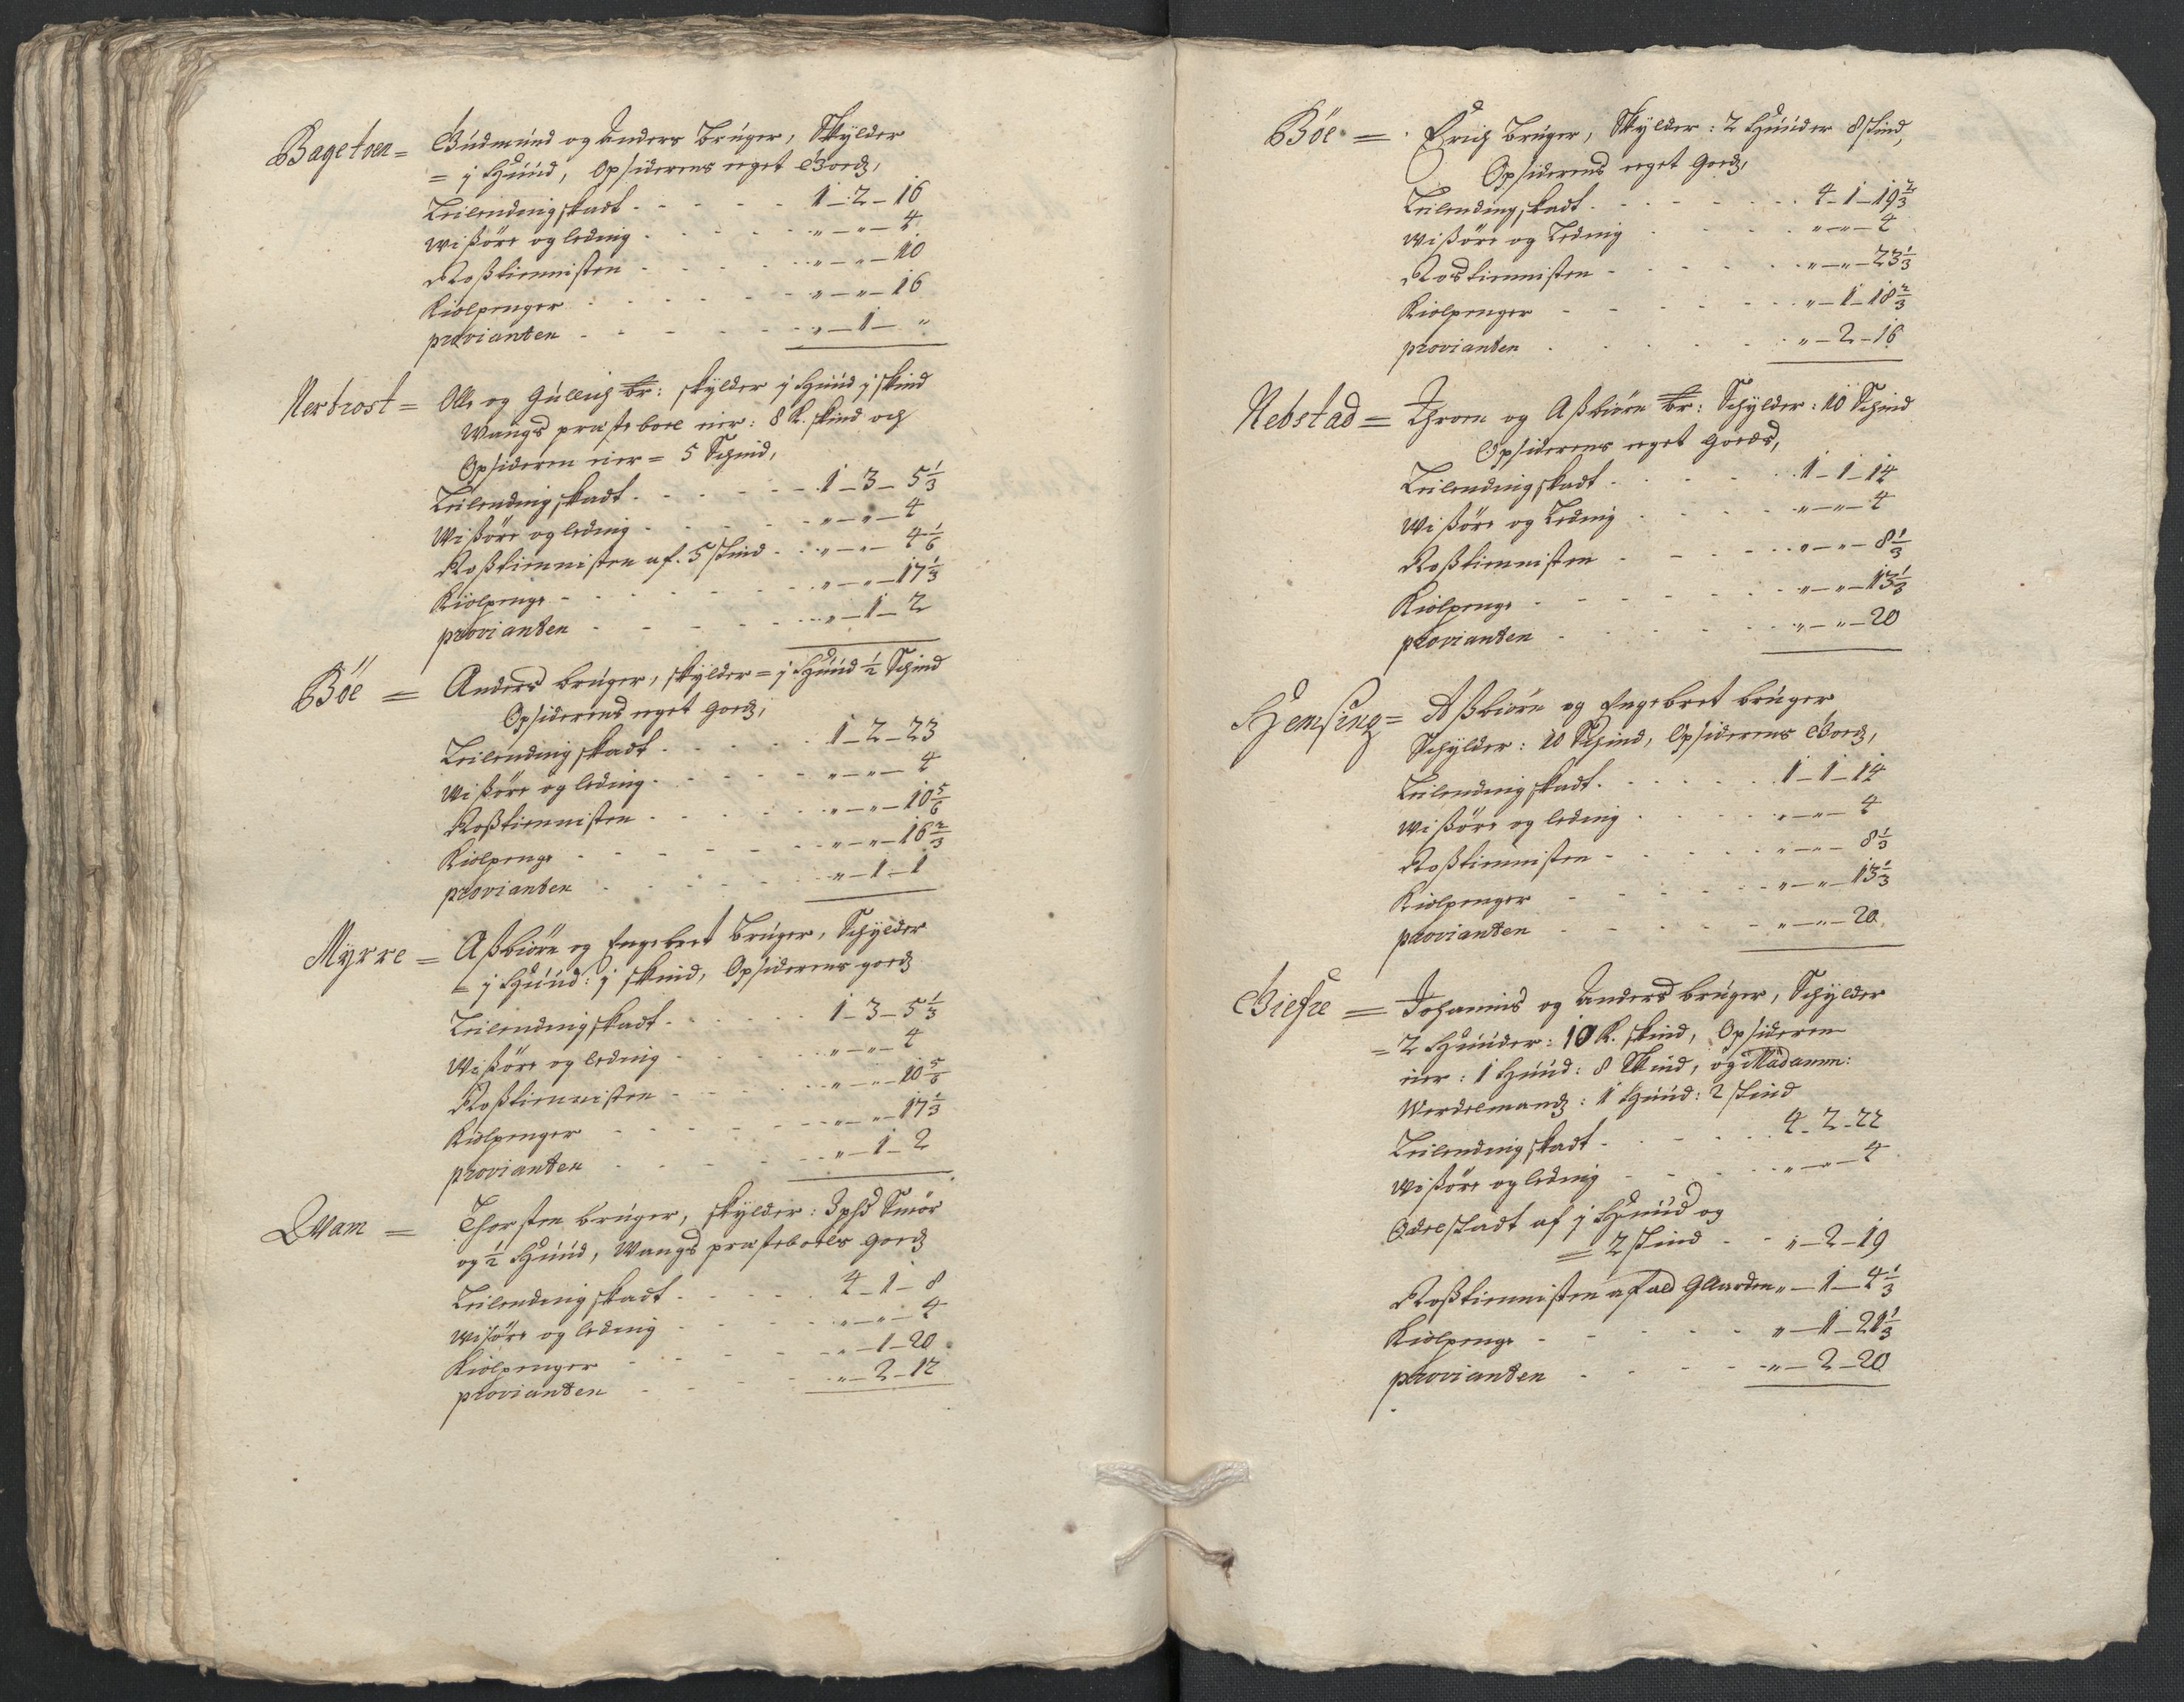 Bagetven = Gudmund og Anders bruger, Skylder
= j Huud, Opsiderens eget Goedz,
Leilendingskadt . . . . . 1 – 2 – 16
Wißöre og leding . . . . „ – „ – 4
Roßtiennisten . . . . „ – „ – 10
Kiolpenger . . . . . „ – „ – 16
provianten . . . . . „ – 1 – „
Nerbrost = Olle og Gulleich br: skylder j Huud j skind
Wangs præsteboel eier: 8 K. skind och
Opsideren eier = 5 Schind,
Leilendingskadt . . . . . 1 – 3 – 5 1/3
Wißöre og leding . . . . „ – „ – 4
Roßtiennisten af. 5 skind . . „ – „ – 4 1/6
Kiölpenge . . . . . „ – „ – 17 1/3
provianten . . . . . „ – 1 – 2
Böe = Anders bruger, skylder = j Huud 1/2 Schind
Opsiderens eget goedz,
Leilendingskadt . . . . . 1 – 2 – 23
Wißöre og leding . . . . „ – „ – 4
Roßtiennisten . . . . „ – „ – 10 5/6
Kiolpenge . . . . . „ – „ – 16 2/3
provianten . . . . . „ – 1 – 1
Myrre = Aßbiörn og Engebret bruger, Schylder
= j Huud: j skind, Opsiderens goedz
Leilendingskadt . . . . . 1 – 3 – 5 1/3
Wißöre og leding . . . . „ – „ – 4
Roßtiennisten . . . . „ – „ – 10 5/6
Kiolpenger . . . . . „ – „ – 17 1/3
provianten . . . . . „ – 1 – 2
Qvam = Thorsten bruger, skylder: 3 phd Smör
og 1/2 Huud, Wangs præsteboels goedz
Leilendingskadt . . . . . 4 – 1 – 8
Wisöre og leding . . . . „ – „ – 4
Kiolpenger . . . . . „ – 1 – 20
provianten . . . . . „ – 2 – 12
Böe = Erich bruger, Skylder: 2 Huuder 8 skind,
Opsiderens eget goedz,
Leilendingskadt . . . . . 4 – 1 – 19 2/3
Wißöre og Leding . . . . „ – „ – 4
Rostiennisten . . . . „ – „ – 23 1/3
Kiolpenger . . . . . „ – 1 – 18 2/3
provianten . . . . . „ – 2 – 16
Nebstad = Throm og Aßbiörn br: Schylder: 10 Schind
Opsiderens eget goeds,
Leilendingskadt . . . . . 1 – 1 – 14
Wißöre og Leding . . . . „ – „ – 4
Roßtiennisten . . . . „ – „ – 8 1/3
Kiolpenge . . . . . „ – „ – 13 1/3
provianten . . . . . „ – „ – 20
Hemsing = Aßbiörn og Engebret bruger
Schylder: 10 Schind, Opsiderens Goedz,
Leilendingskadt . . . . . 1 – 1 – 14
Wißöre og leding . . . . „ – „ – 4
Roßtiennisten . . . . „ – „ – 8 1/3
Kiolpenger . . . . . „ – „ – 13 1/3
provianten . . . . . „ – „ – 20
Giefre = Johannis og Anders bruger, Schylder
= 2 Huuder: 10 K. skind, Opsideren
eier: 1 Huud: 8 Skind, og Madamm:
Werdelmandz: 1 Huud: 2 skind
Leilendingskadt . . . . . 4 – 2 – 22
Wißöre og leding . . . . „ – „ – 4
Odelskadt af j Huud og
= 2 skind . . „ – 2 – 19
Roßtiennisten af ald Gaarden „ – 1 – 4 1/3
Kiolpenge . . . . . „ – 1 – 21 1/3
provianten . . . . „ – 2 – 20